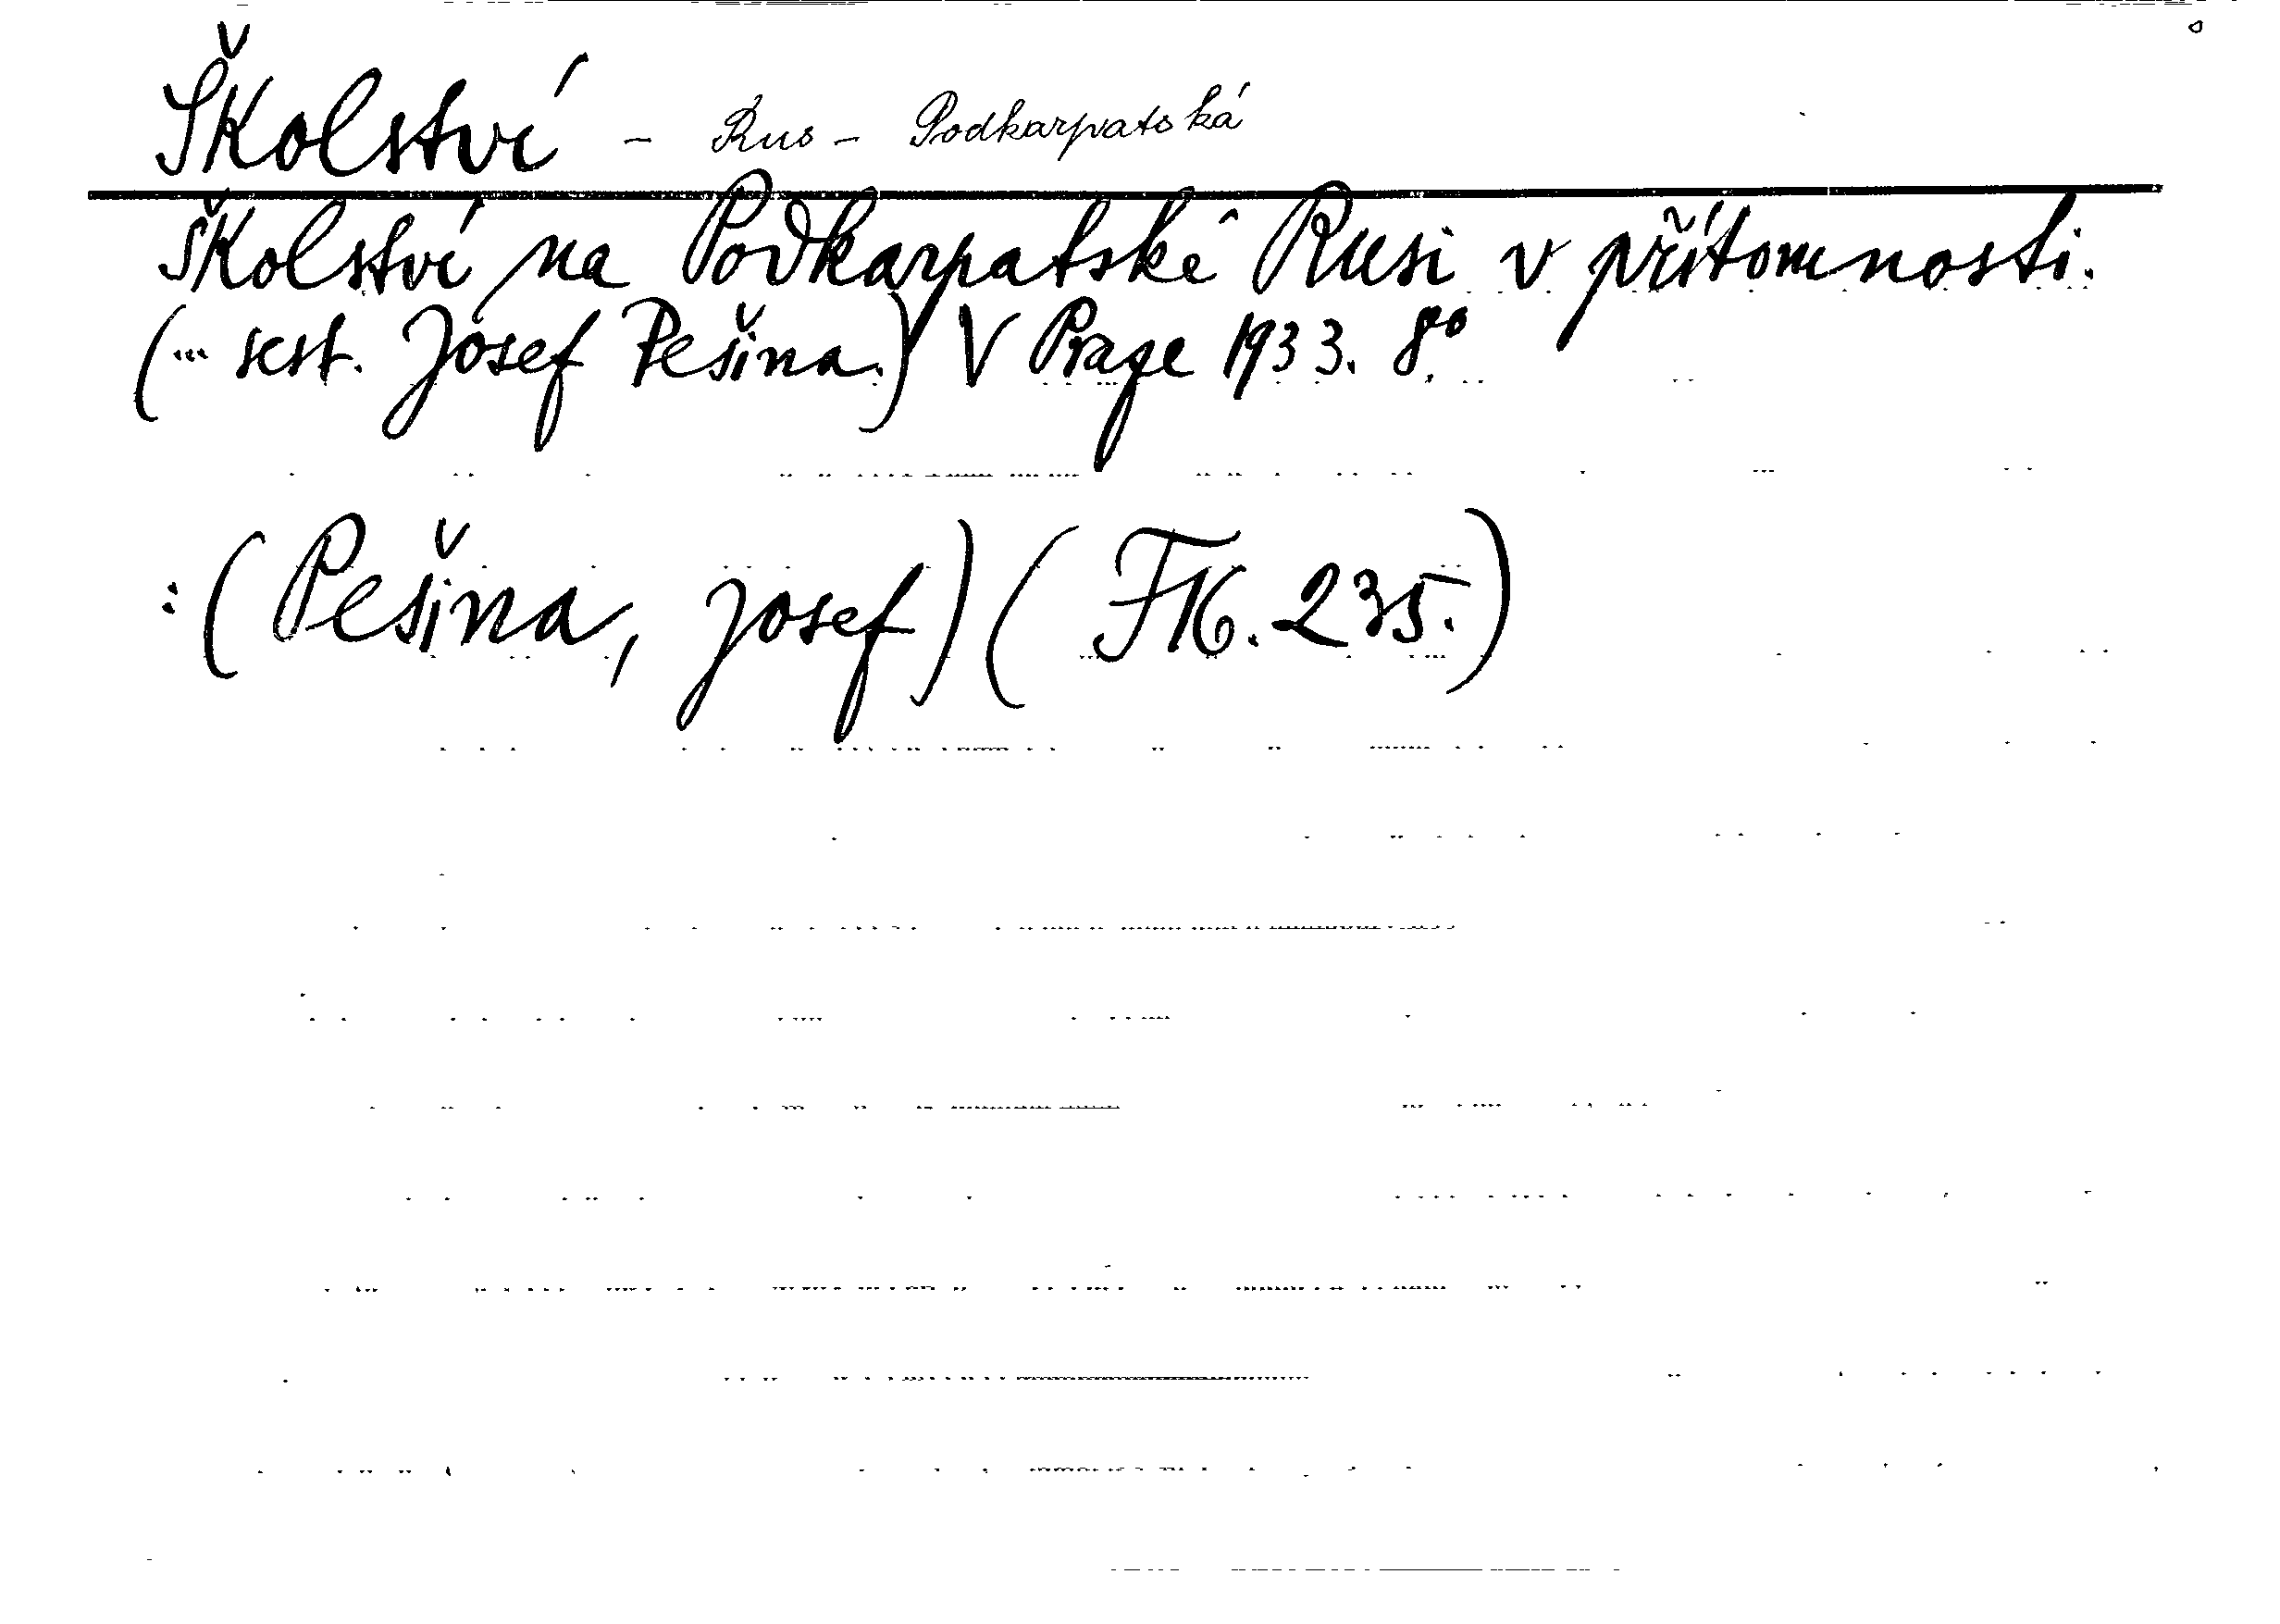 Školství – Rus – Podkarpatská
Školství na Podkarpatské Rusi v přítomnosti.
(... sest. Josef Pešina.) V Praze 1933. 8°
: (Pešina, Josef) (FK. 235.)